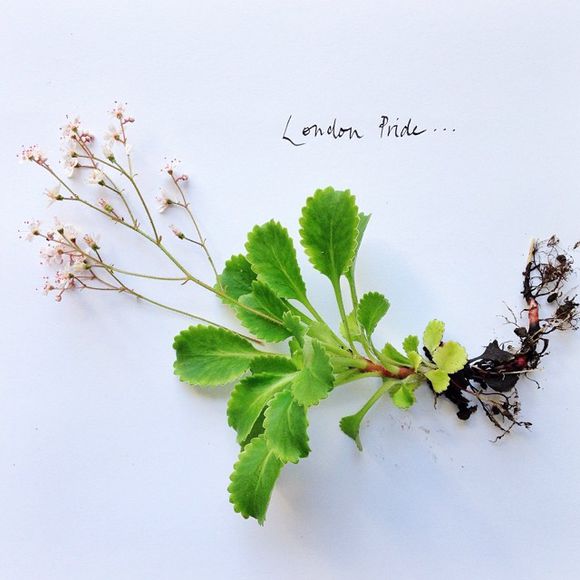 London Pride...